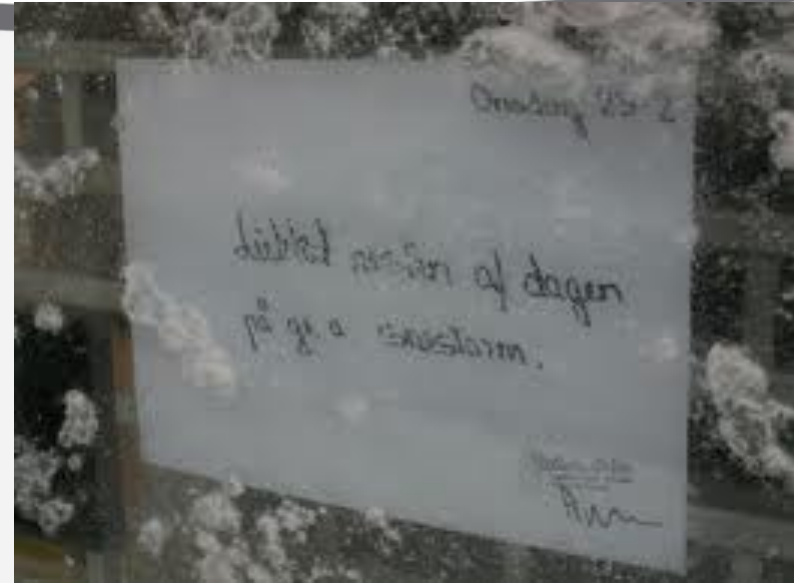 Onsdag
Lukket resten af dagen
på gr. a snestorm.